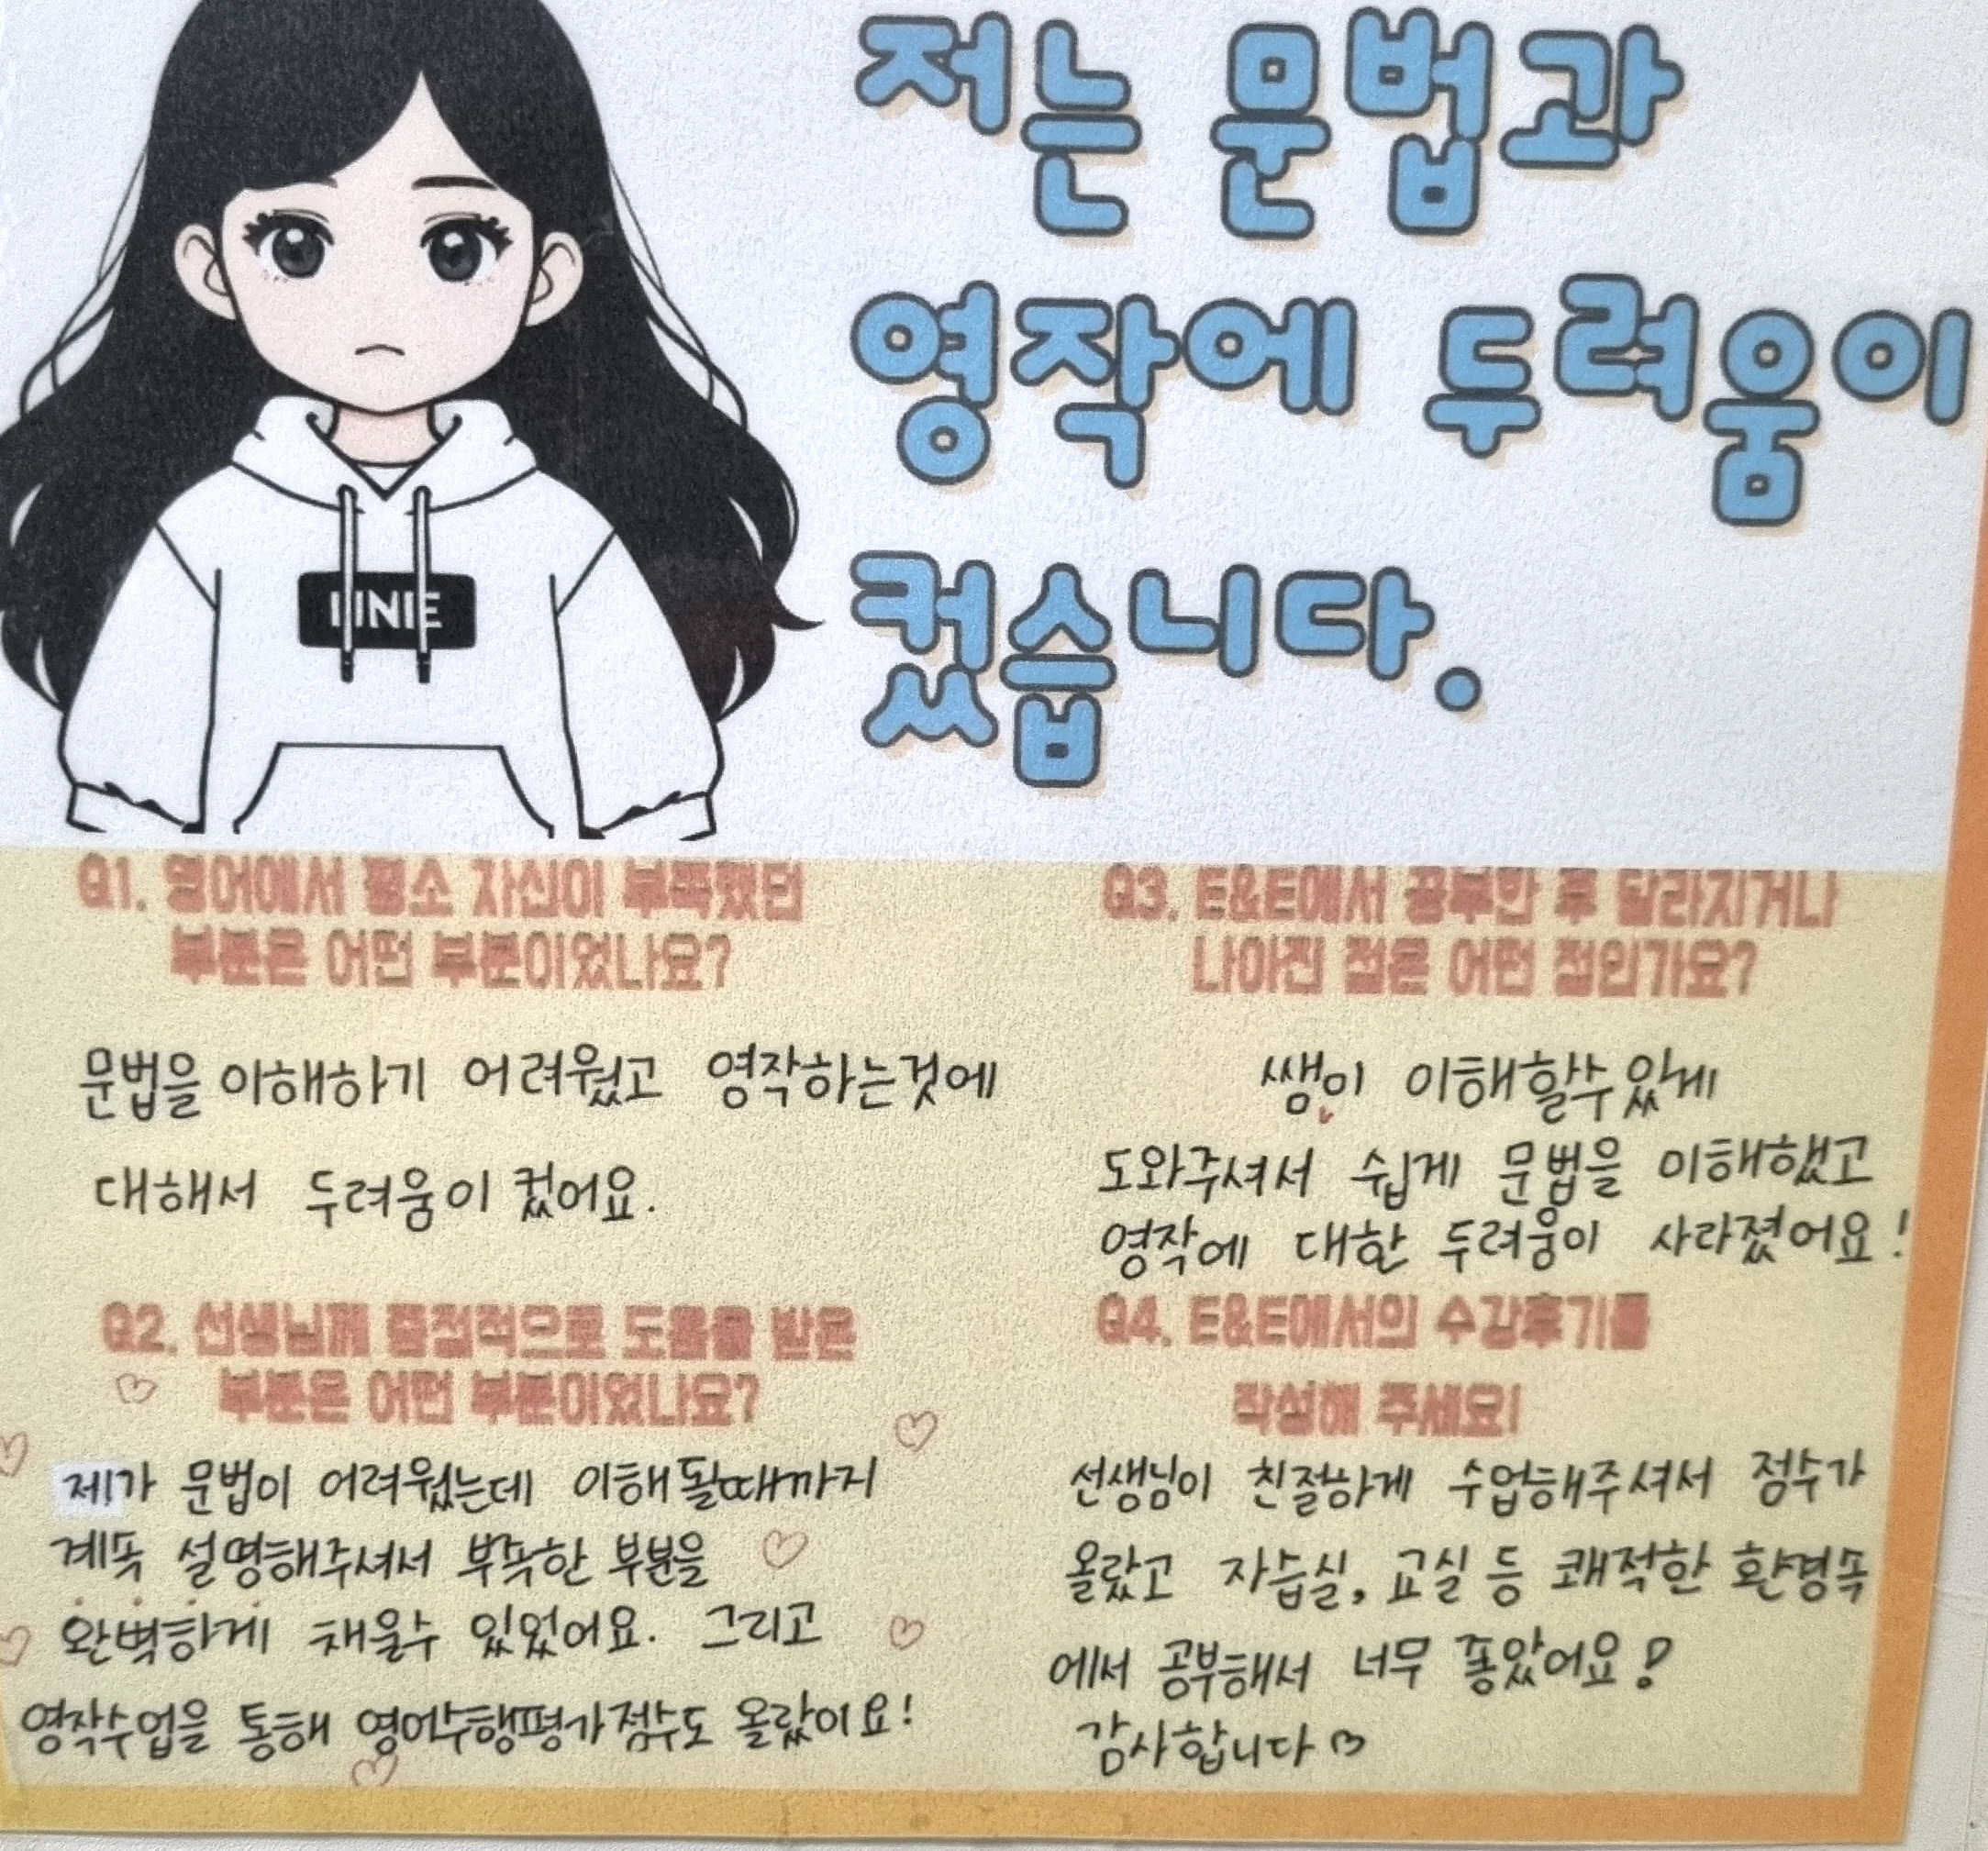 저는 문법과
영작에 두려움이
컸습니다.
Q1. 영어에서 평소 자신이 부족했던
부분은 어떤 부분이었나요?
문법을 이해하기 어려웠고 영작하는것에
대해서 두려움이 컸어요.
Q2. 선생님께 중점적으로 도움을 받은
부분은 어떤 부분이었나요?
제가 문법이 어려웠는데 이해될때까지
계속 설명해주셔서 부족한 부분을
완벽하게 채울수 있었어요. 그리고
영작수업을 통해 영어수행평가점수도 올랐이요!
Q3. E&E에서 공부한 후 달라지거나
나아진 점은 어떤 점인가요?
쌤이 이해할수있게
도와주셔서 쉽게 문법을 이해했고
영작에 대한 두려움이 사라졌어요!
Q4. E&E에서의 수강후기를
작성해 주세요!
선생님이 친절하게 수업해주셔서 점수가
올랐고 자습실, 교실 등 쾌적한 환경속
에서 공부해서 너무 좋았어요!
감사합니다♡